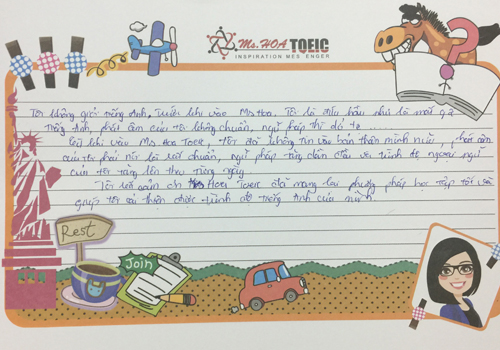 Ms. HOA TOEIC
INSPIRATION MESSENGER
Tôi không giỏi tiếng Anh, trước khi vào Ms Hoa, Tôi là
tiếng Anh, phát âm của tôi không chuẩn, ngữ pháp thì
khi vào Ms Hoa Toeic, Tôi đã tin vào bản thân mình hơn, phát âm
của tôi phải nói là rất chuẩn, ngữ pháp từng dần đầu và trình độ ngoại ngữ
của tôi tăng lên theo từng ngày
Tôi rất cảm ơn Ms Hoa Toeic đã mang lại phương pháp học tập tốt và
giúp tôi cải thiện được trình độ tiếng Anh của mình.
Rest
Join